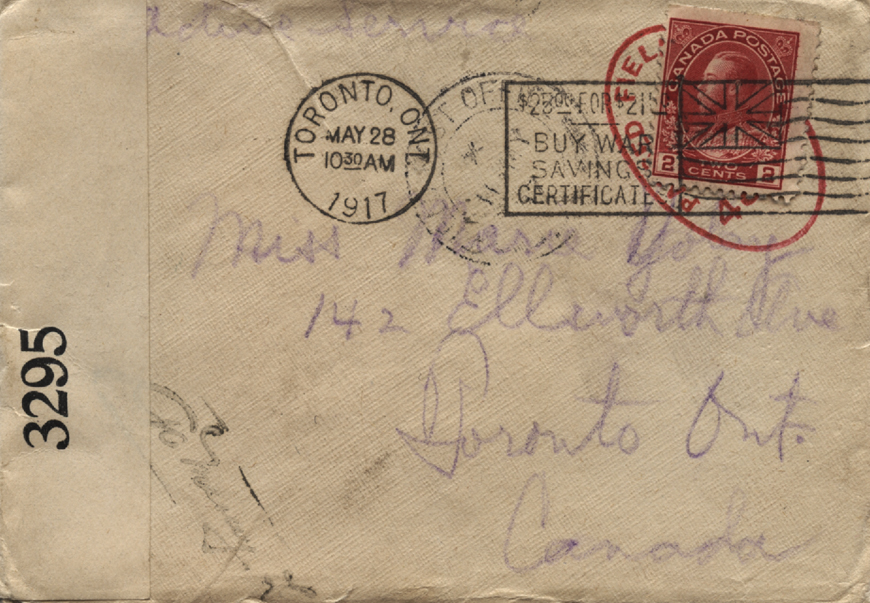 Active Service
TORONTO, ONT
MAY 28
10 30 AM
1917
$25.00 FOR $21.50
BUY WAR
SAVINGS
CERTIFICATES
FIELD
4
CANADA POSTAGE
2 TWO CENTS 2
Miss Marie
142 Ellsworth Ave
Toronto Ont.
Canada
3295